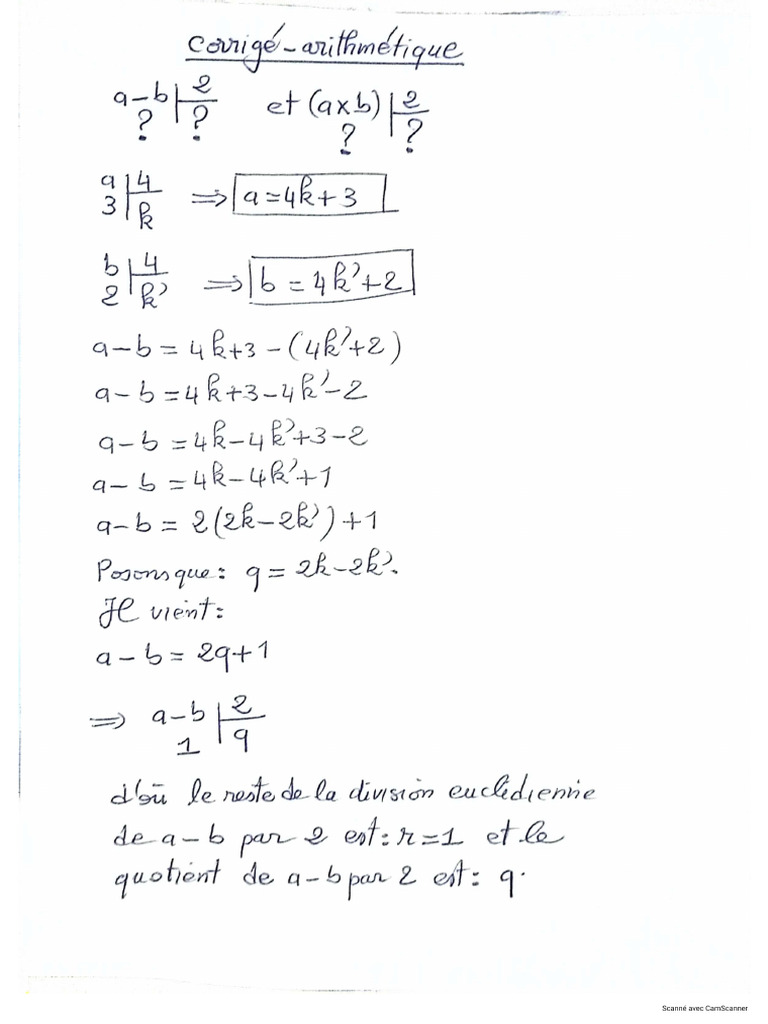 Corrigé-arithmétique
a-b | 2 et (a×b) | 2
? | ? ? | ?
a | 4
3 | k ⇒ a=4k+3
b | 4
2 | k' ⇒ b = 4k'+2
a-b = 4k+3-(4k'+2)
a-b = 4k+3-4k'-2
a-b = 4k-4k'+3-2
a-b = 4k-4k'+1
a-b = 2(2k-2k')+1
Posons que: q = 2k-2k'.
Il vient:
a-b = 2q+1
⇒ a-b | 2
1 | q
d'où le reste de la division euclidienne
de a-b par 2 est: r=1 et le
quotient de a-b par 2 est: q.
Scanné avec CamScanner